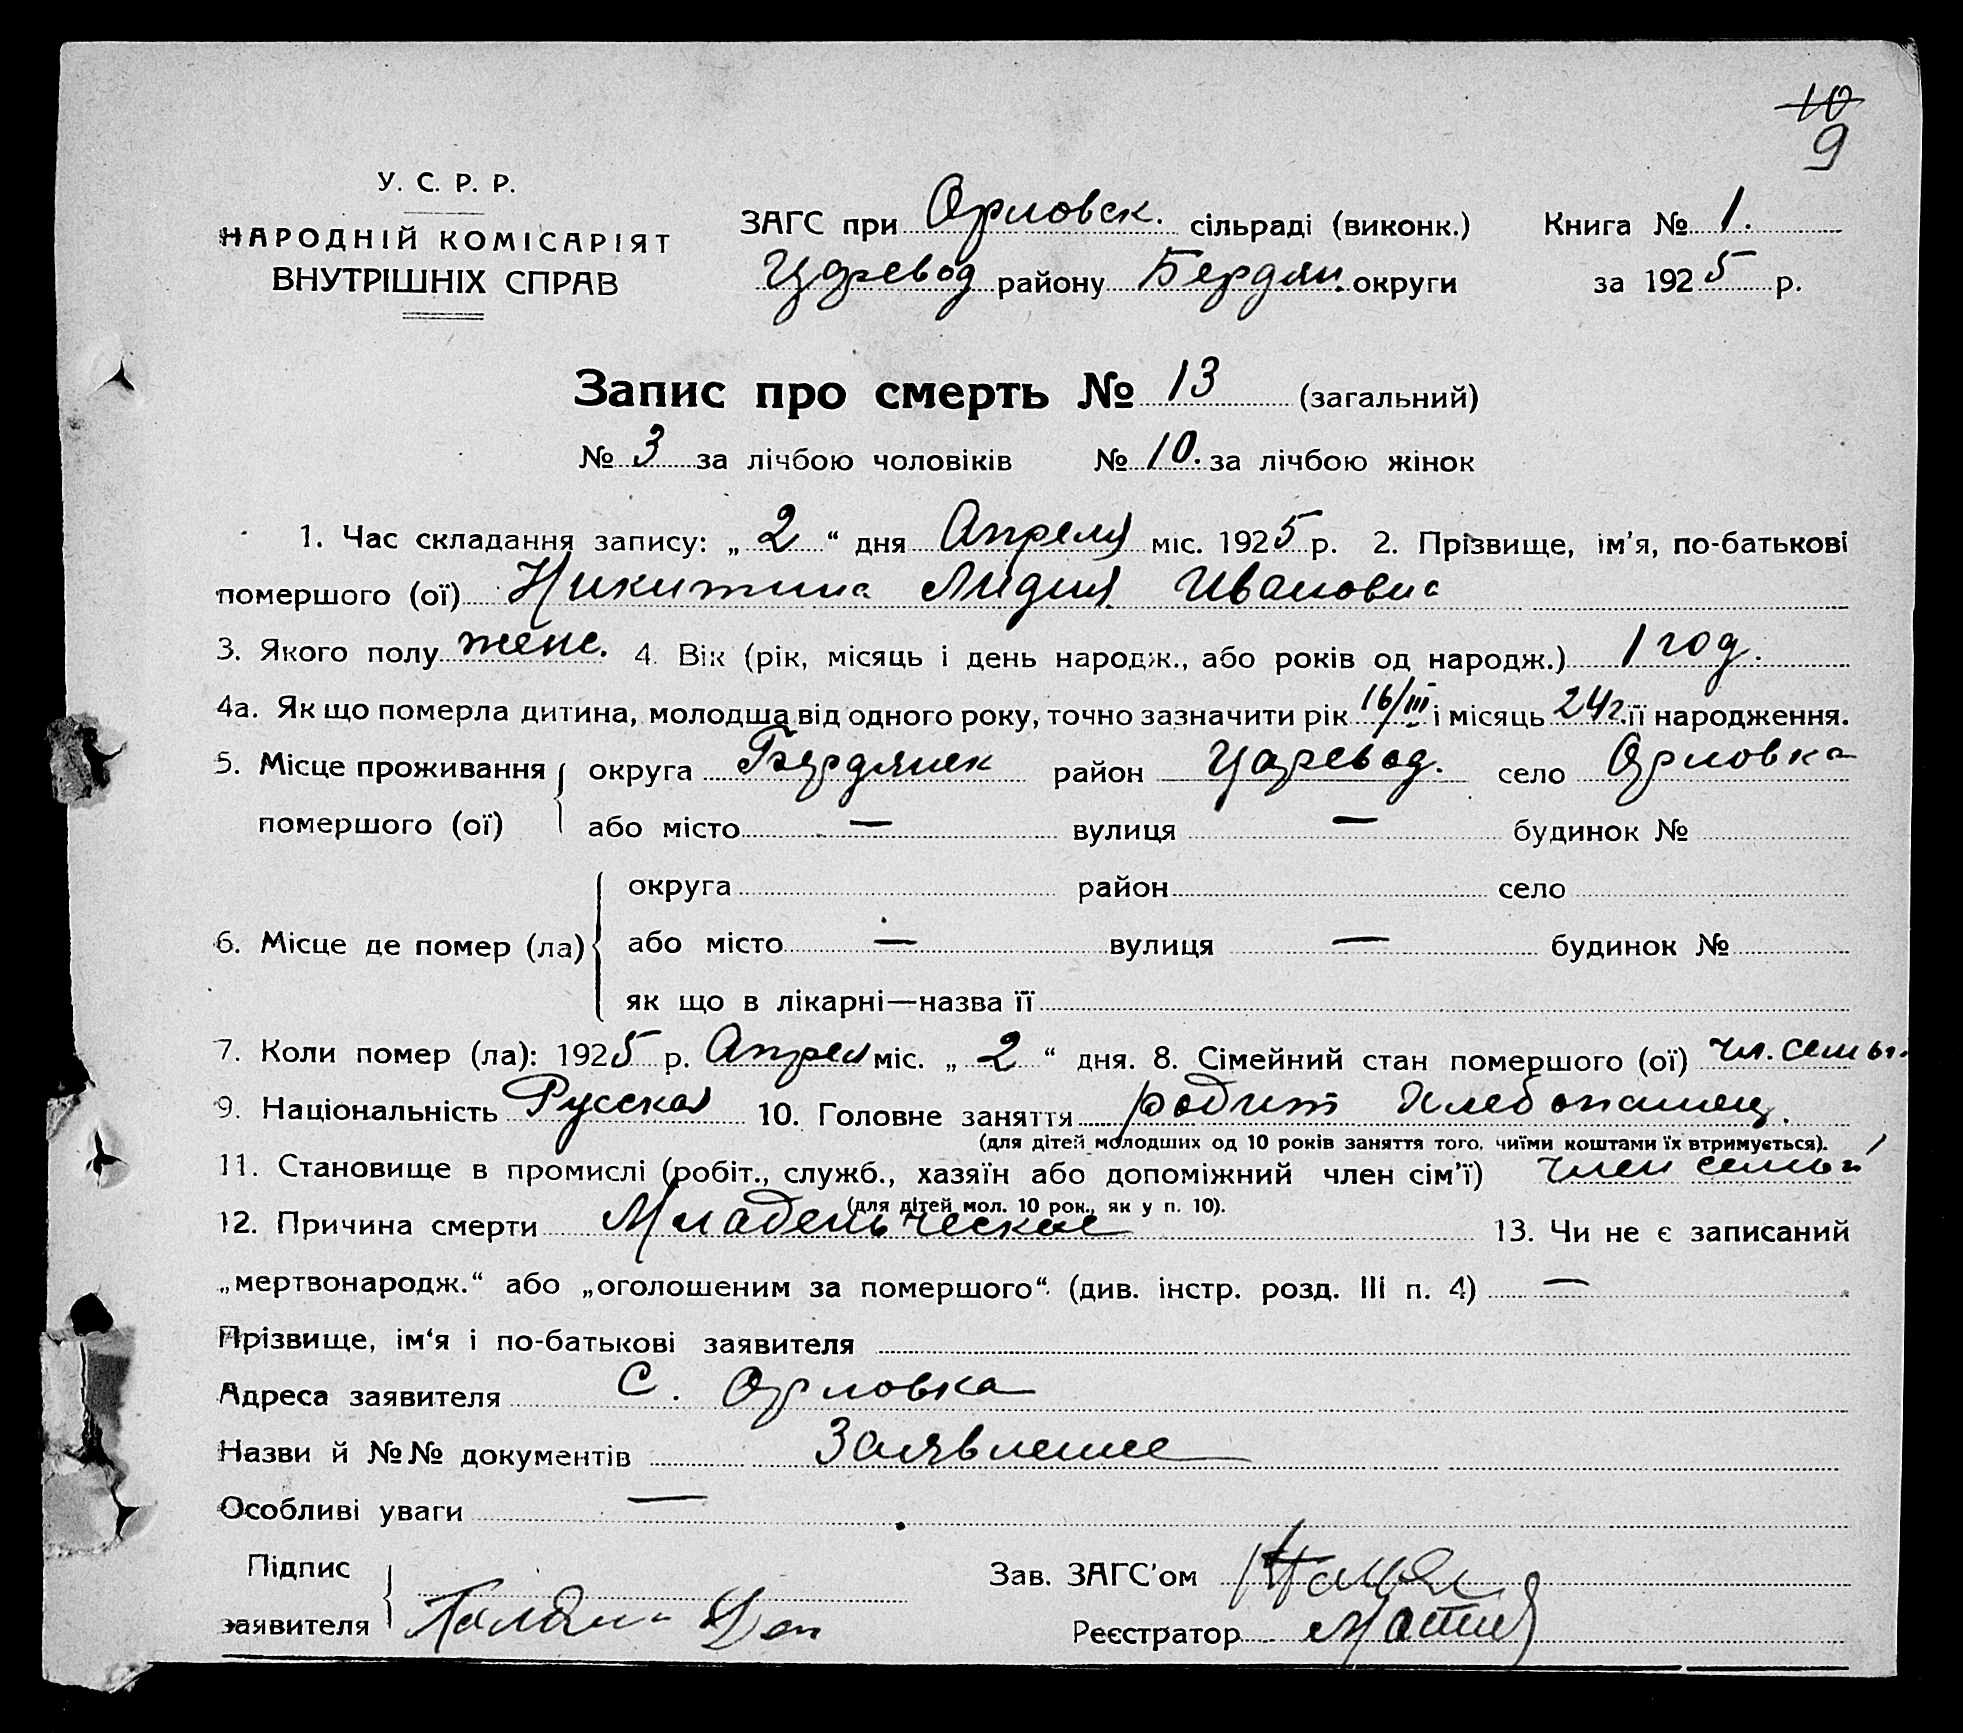 10
9
У. С. Р. Р.
НАРОДНІЙ КОМІСАРІЯТ
ВНУТРІШНІХ СПРАВ
ЗАГС при Орловск. сільраді (виконк.) Книга № 1.
Царевод району Бердян. округи за 1925 р.
Запис про смерть № 13 (загальний)
№ 3 за лічбою чоловіків № 10. за лічбою жінок
1. Час складання запису: „2“ дня Апреля міс. 1925 р. 2. Прізвище, ім'я, по-батькові
помершого (ої) Никитина Лидия Ивановна
3. Якого полу женс. 4. Вік (рік, місяць і день народж., або років од народж.) 1 год.
4а. Як що померла дитина, молодша від одного року, точно зазначити рік 16/III і місяць 24 г. її народження.
5. Місце проживання округа Бердянск район Царевод. село Орловка
помершого (ої) або місто — вулиця — будинок №
округа район село
6. Місце де помер (ла) або місто — вулиця — будинок №
як що в лікарні—назва її
7. Коли помер (ла): 1925 р. Апреля міс. „2“ дня. 8. Сімейний стан помершого (ої) чл. семьи.
9. Національність Русская 10. Головне заняття родит хлебопашец.
(для дітей молодших од 10 років заняття того, чиїми коштами їх втримується).
11. Становище в промислі (робіт., служб., хазяїн або допоміжний член сім'ї) член семьи
(для дітей мол. 10 рок., як у п. 10).
12. Причина смерти Младенческая 13. Чи не є записаний
„мертвонародж.“ або „оголошеним за помершого“ (див. інстр. розд. III п. 4) —
Прізвище, ім'я і по-батькові заявителя
Адреса заявителя С. Орловка
Назви й №№ документів Заявление
Особливі уваги —
Підпис
заявителя
Зав. ЗАГС'ом
Реєстратор